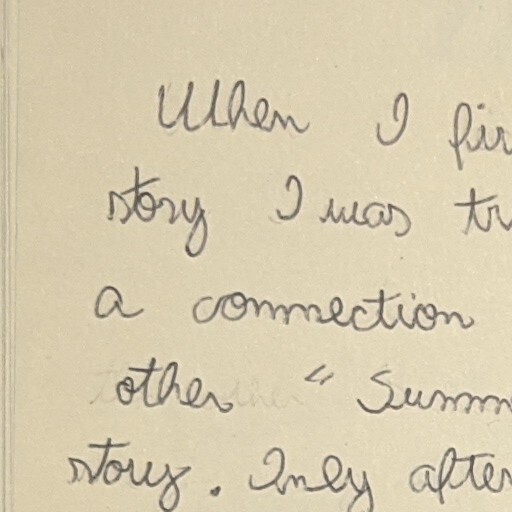 When I fir
story I was tr
a connection
other " Summ
story. Only after